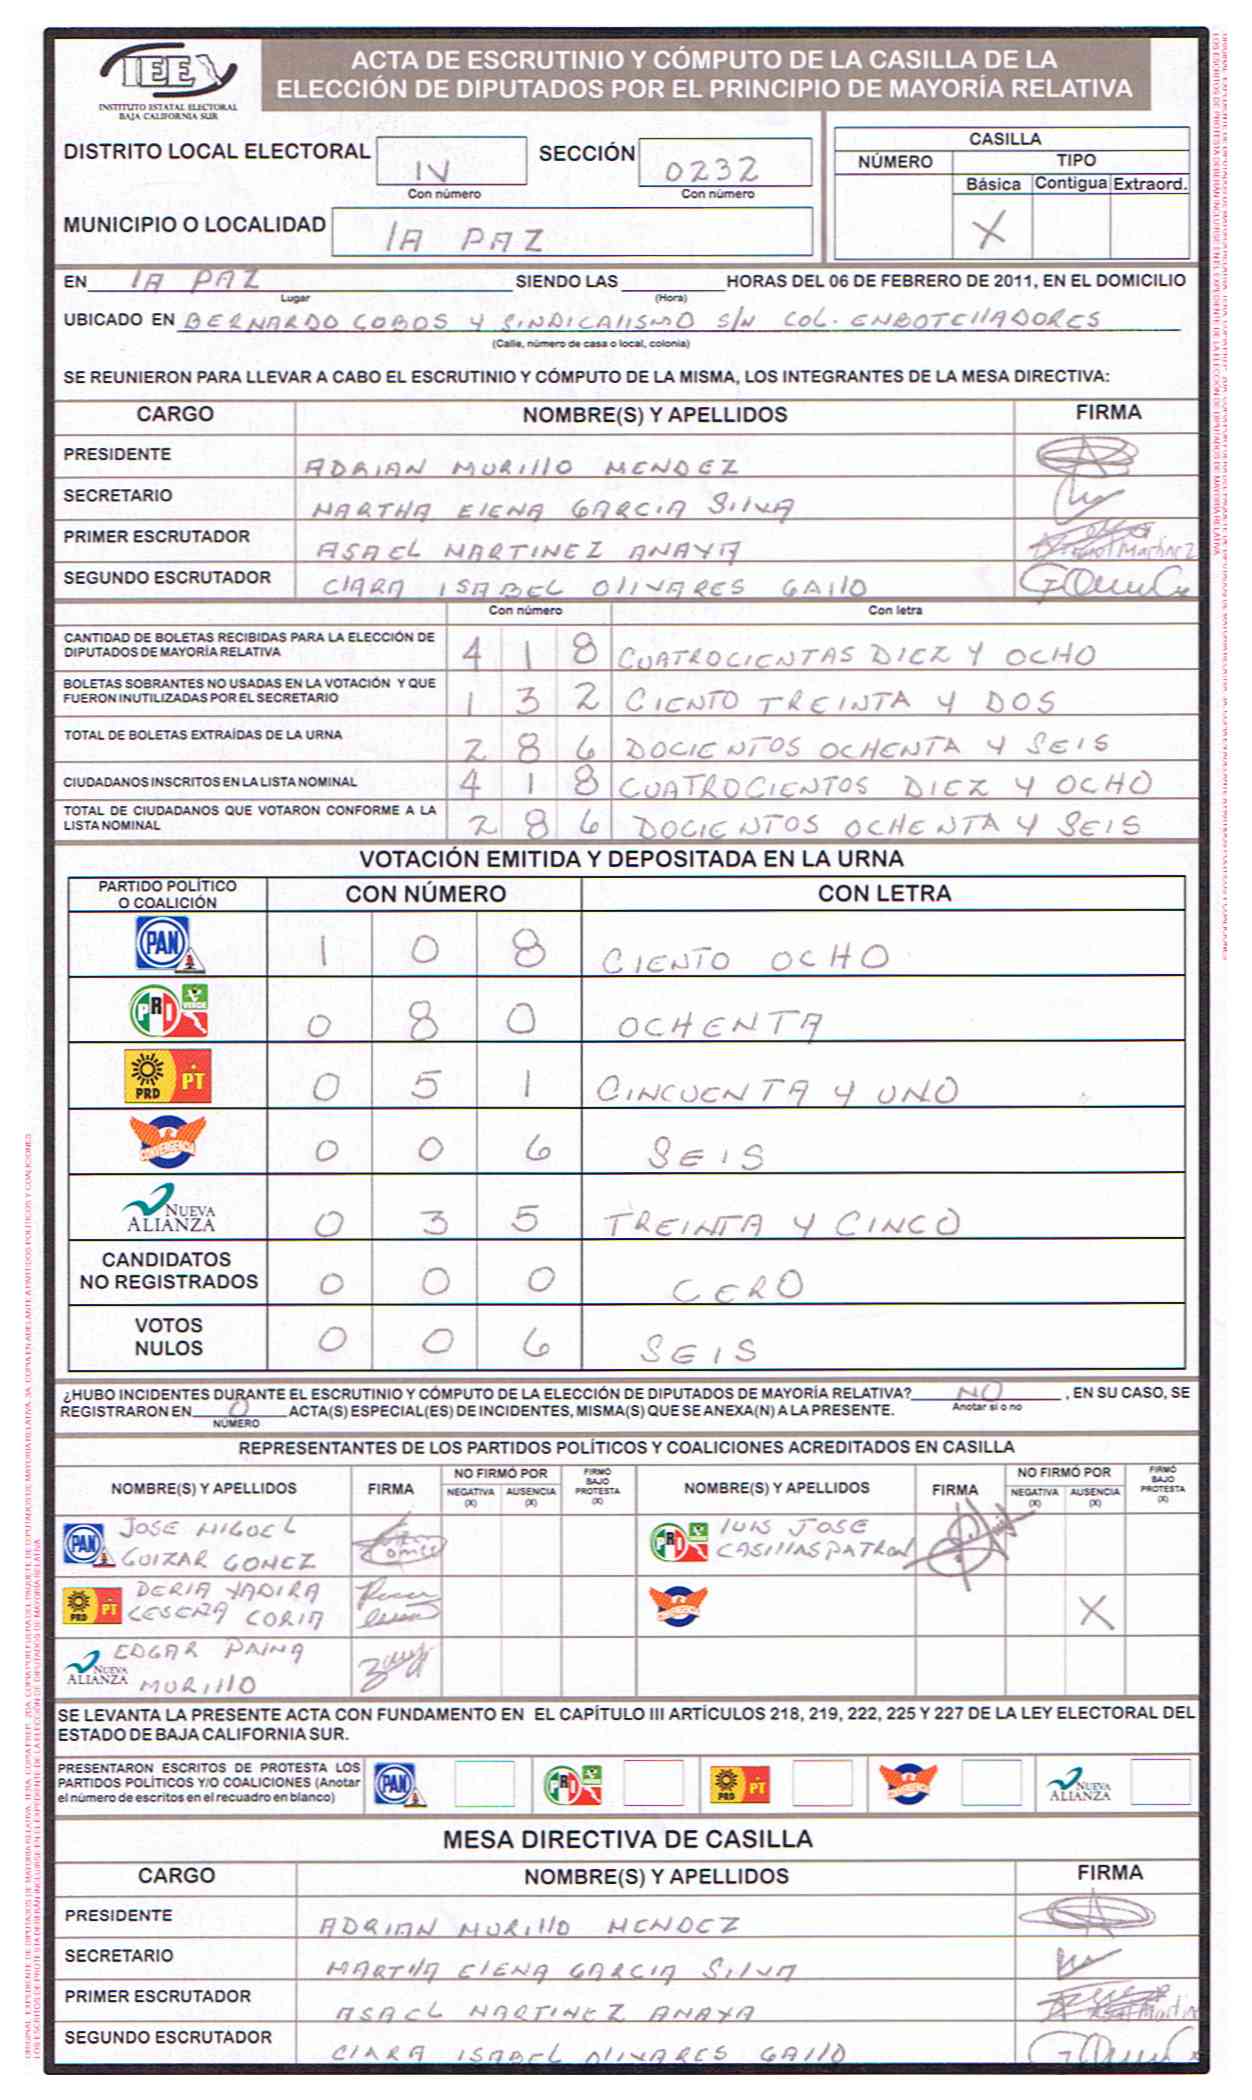 IEE
INSTITUTO ESTATAL ELECTORAL
BAJA CALIFORNIA SUR
ACTA DE ESCRUTINIO Y CÓMPUTO DE LA CASILLA DE LA
ELECCIÓN DE DIPUTADOS POR EL PRINCIPIO DE MAYORÍA RELATIVA
DISTRITO LOCAL ELECTORAL IV SECCIÓN 0232
Con número Con número
MUNICIPIO O LOCALIDAD lA PAZ
CASILLA
NÚMERO TIPO
Básica Contigua Extraord.
X
EN lA PAZ SIENDO LAS HORAS DEL 06 DE FEBRERO DE 2011, EN EL DOMICILIO
Lugar (Hora)
UBICADO EN BERNARDO COBOS Y SINDICAlISMO S/N COL. ENBOTEllADORES
(Calle, número de casa o local, colonia)
SE REUNIERON PARA LLEVAR A CABO EL ESCRUTINIO Y CÓMPUTO DE LA MISMA, LOS INTEGRANTES DE LA MESA DIRECTIVA:
CARGO NOMBRE(S) Y APELLIDOS FIRMA
PRESIDENTE ADRIAN MURIllO MENDEZ
SECRETARIO MARTHA ElENA GARCIA SIlVA
PRIMER ESCRUTADOR ASAEL MARTINEZ ANAYA
SEGUNDO ESCRUTADOR ClARA ISABEL OlIVARES GAllO
Con número Con letra
CANTIDAD DE BOLETAS RECIBIDAS PARA LA ELECCIÓN DE
DIPUTADOS DE MAYORÍA RELATIVA 4 1 8 CUATROCIENTAS DIEZ Y OCHO
BOLETAS SOBRANTES NO USADAS EN LA VOTACIÓN Y QUE
FUERON INUTILIZADAS POR EL SECRETARIO 1 3 2 CIENTO TREINTA Y DOS
TOTAL DE BOLETAS EXTRAÍDAS DE LA URNA 2 8 6 DOCIENTOS OCHENTA Y SEIS
CIUDADANOS INSCRITOS EN LA LISTA NOMINAL 4 1 8 CUATROCIENTOS DIEZ Y OCHO
TOTAL DE CIUDADANOS QUE VOTARON CONFORME A LA
LISTA NOMINAL 2 8 6 DOCIENTOS OCHENTA Y SEIS
VOTACIÓN EMITIDA Y DEPOSITADA EN LA URNA
PARTIDO POLÍTICO
O COALICIÓN CON NÚMERO CON LETRA
PAN 1 0 8 CIENTO OCHO
PRI VERDE 0 8 0 OCHENTA
PRD PT 0 5 1 CINCUENTA Y UNO
CONVERGENCIA 0 0 6 SEIS
NUEVA ALIANZA 0 3 5 TREINTA Y CINCO
CANDIDATOS
NO REGISTRADOS 0 0 0 CERO
VOTOS
NULOS 0 0 6 SEIS
¿HUBO INCIDENTES DURANTE EL ESCRUTINIO Y CÓMPUTO DE LA ELECCIÓN DE DIPUTADOS DE MAYORÍA RELATIVA? NO , EN SU CASO, SE
Anotar si o no
REGISTRARON EN 0 ACTA(S) ESPECIAL(ES) DE INCIDENTES, MISMA(S) QUE SE ANEXA(N) A LA PRESENTE.
NÚMERO
REPRESENTANTES DE LOS PARTIDOS POLÍTICOS Y COALICIONES ACREDITADOS EN CASILLA
NOMBRE(S) Y APELLIDOS FIRMA NO FIRMÓ POR NEGATIVA (X) AUSENCIA (X) FIRMÓ BAJO PROTESTA (X) NOMBRE(S) Y APELLIDOS FIRMA NO FIRMÓ POR NEGATIVA (X) AUSENCIA (X) FIRMÓ BAJO PROTESTA (X)
PAN JOSE MIGUEL
GUIZAR GOMEZ
PRI VERDE lUIS JOSE
CASIllAS PATRON
PRD PT DERIA YADIRA
CESEÑA CORIA
CONVERGENCIA X
NUEVA ALIANZA EDGAR
MURIllO
SE LEVANTA LA PRESENTE ACTA CON FUNDAMENTO EN EL CAPÍTULO III ARTÍCULOS 218, 219, 222, 225 Y 227 DE LA LEY ELECTORAL DEL
ESTADO DE BAJA CALIFORNIA SUR.
PRESENTARON ESCRITOS DE PROTESTA LOS
PARTIDOS POLÍTICOS Y/O COALICIONES (Anotar
el número de escritos en el recuadro en blanco)
PAN PRI VERDE PRD PT CONVERGENCIA NUEVA ALIANZA
MESA DIRECTIVA DE CASILLA
CARGO NOMBRE(S) Y APELLIDOS FIRMA
PRESIDENTE ADRIAN MURIllO MENDEZ
SECRETARIO MARTHA ElENA GARCIA SIlVA
PRIMER ESCRUTADOR ASAEL MARTINEZ ANAYA
SEGUNDO ESCRUTADOR ClARA ISABEL OlIVARES GAllO